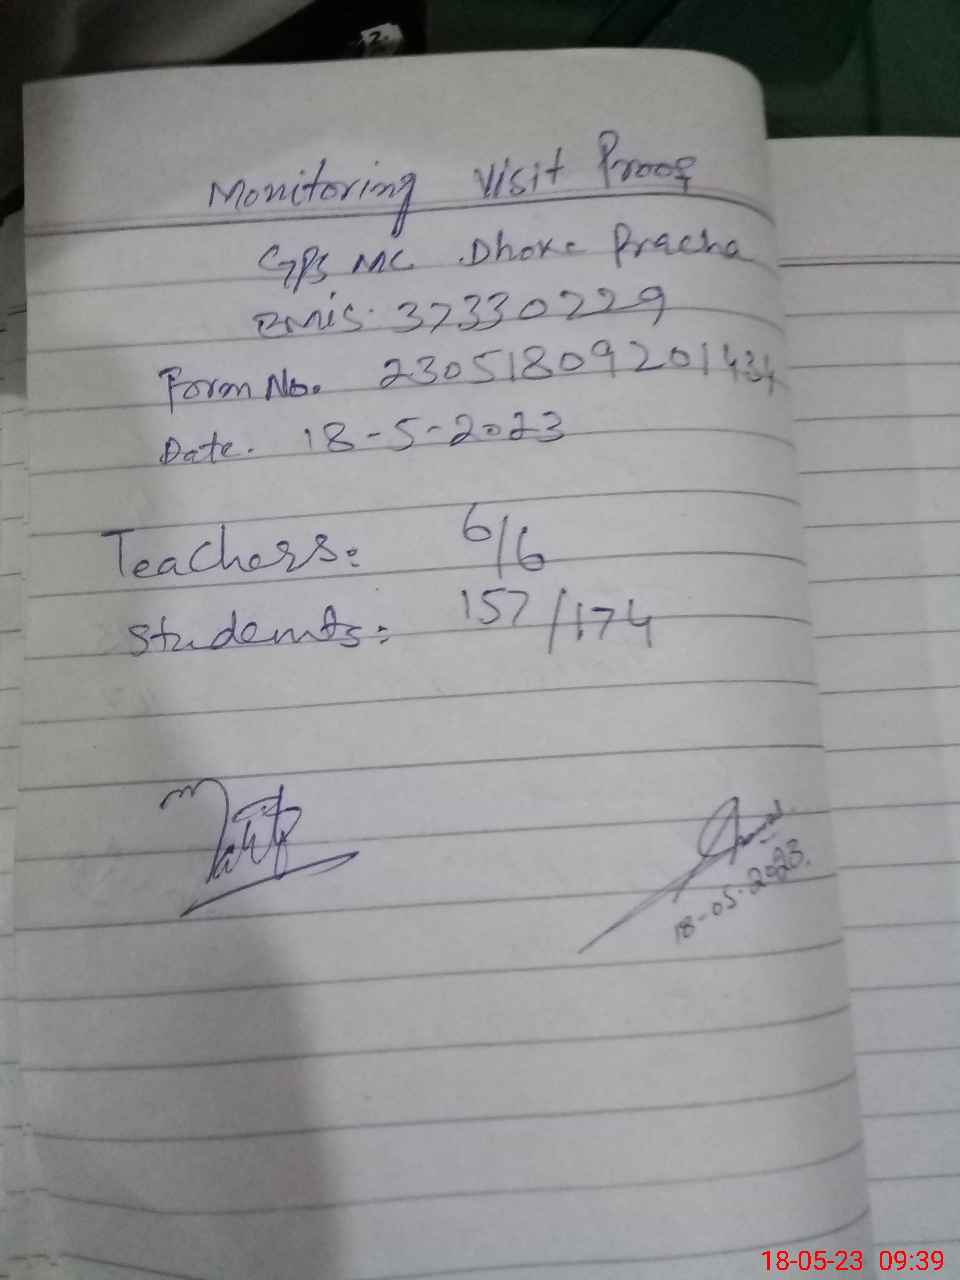 Monitoring Visit Proof
GPS MC Dhoke Pracha
EMIS. 37330229
Form No. 23051809201434
Date. 18-5-2023
Teachers: 6/6
Students: 157/174
18-05-2023.
18-05-23 09:39